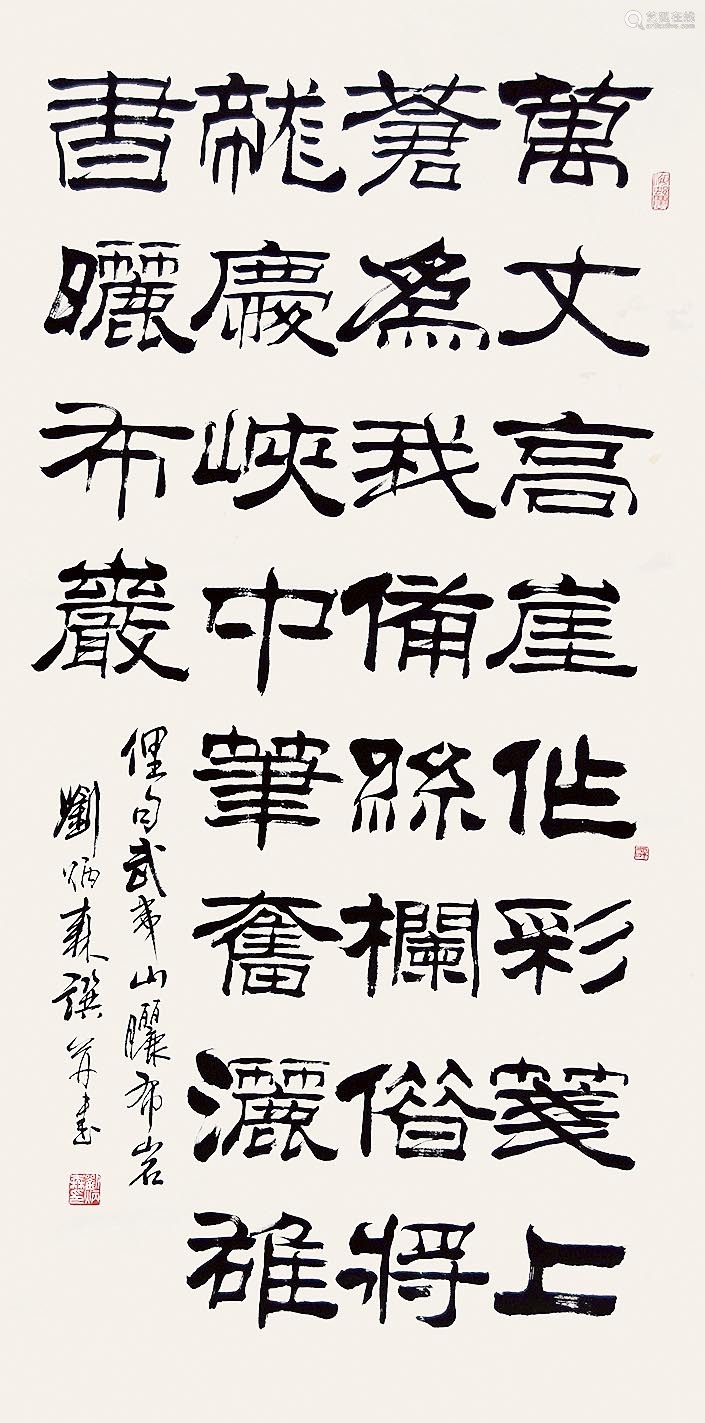 萬丈高崖作彩箋上
蒼爲我備絲欄借將
龍慶峽中筆奮灑雄
書曬布巖
俚句武夷山曬布岩
劉炳森撰并書
艺狐在线